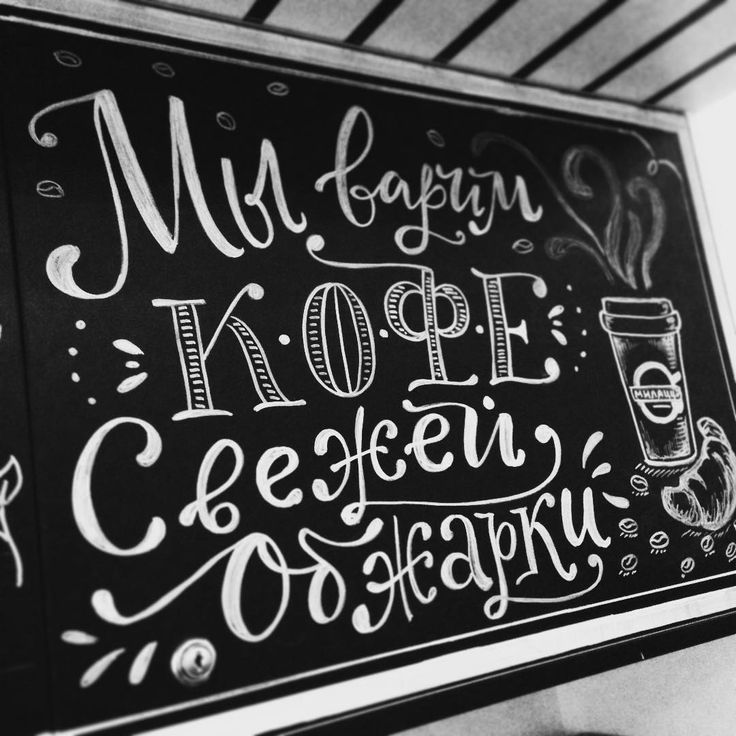 Мы варим
К·О·Ф·Е
Свежей
Обжарки